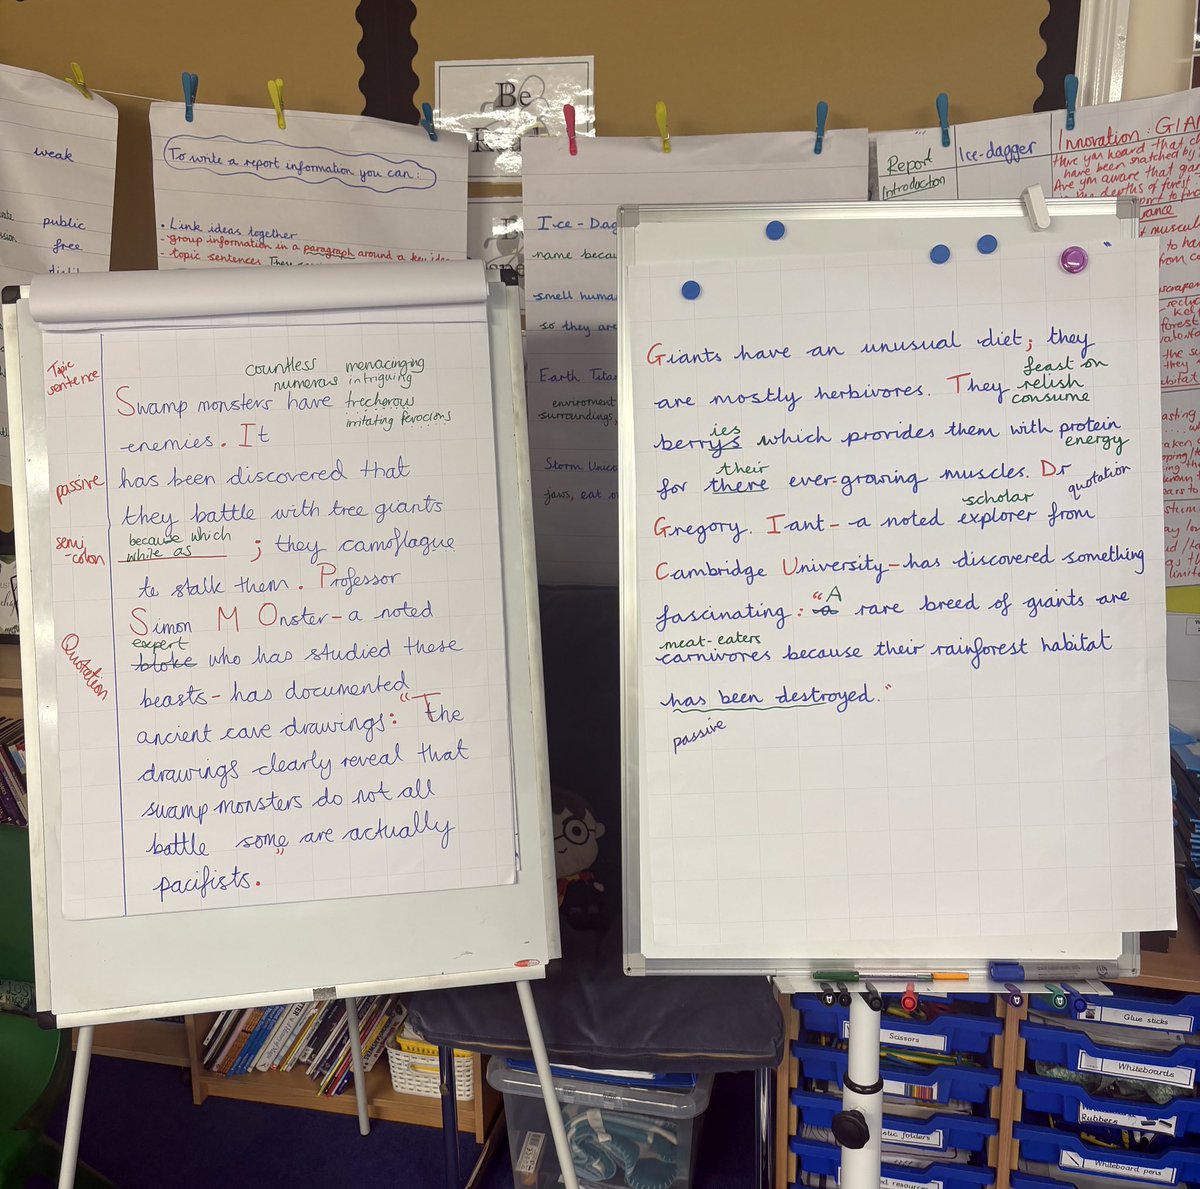 weak
public
free
To write a report information you can:
• Link ideas together
- group information in a paragraph around a key idea
- topic sentences These
Be
Ice-Dag
name becau
smell huma
so they are
Earth Tita
enviroment
surroundings,
Storm Unico
jaws, eat o
Report
Introduction
Ice-dagger
Innovation: GIA
Have you heard that ch
have been snatched by
Are you aware that gia
depths of forest
Topic
sentence
countless menacinging
numerous intriguing
Swamp monsters have trecherous
irritating ferocions
enemies. It
passive
has been discovered that
they battle with tree giants
semi
-colon
because which
while as ; they camoflague
to stalk them. Professor
Simon M Onster - a noted
expert
Quotation
bloke who has studied these
beasts - has documented
ancient cave drawings: "The
drawings clearly reveal that
swamp monsters do not all
battle some are actually
pacifists."
Giants have an unusual diet; they
feast on
are mostly herbivores. They relish
consume
ies
berrys which provides them with protein
energy
their
for there ever-growing muscles. Dr
quotation
scholar
Gregory. I-ant - a noted explorer from
Cambridge University - has discovered something
A
fascinating: "a rare breed of giants are
meat-eaters
carnivores because their rainforest habitat
has been destroyed."
passive
Scissors
Glue sticks
Whiteboards
Whiteboard
Rubbers
Whiteboard pens